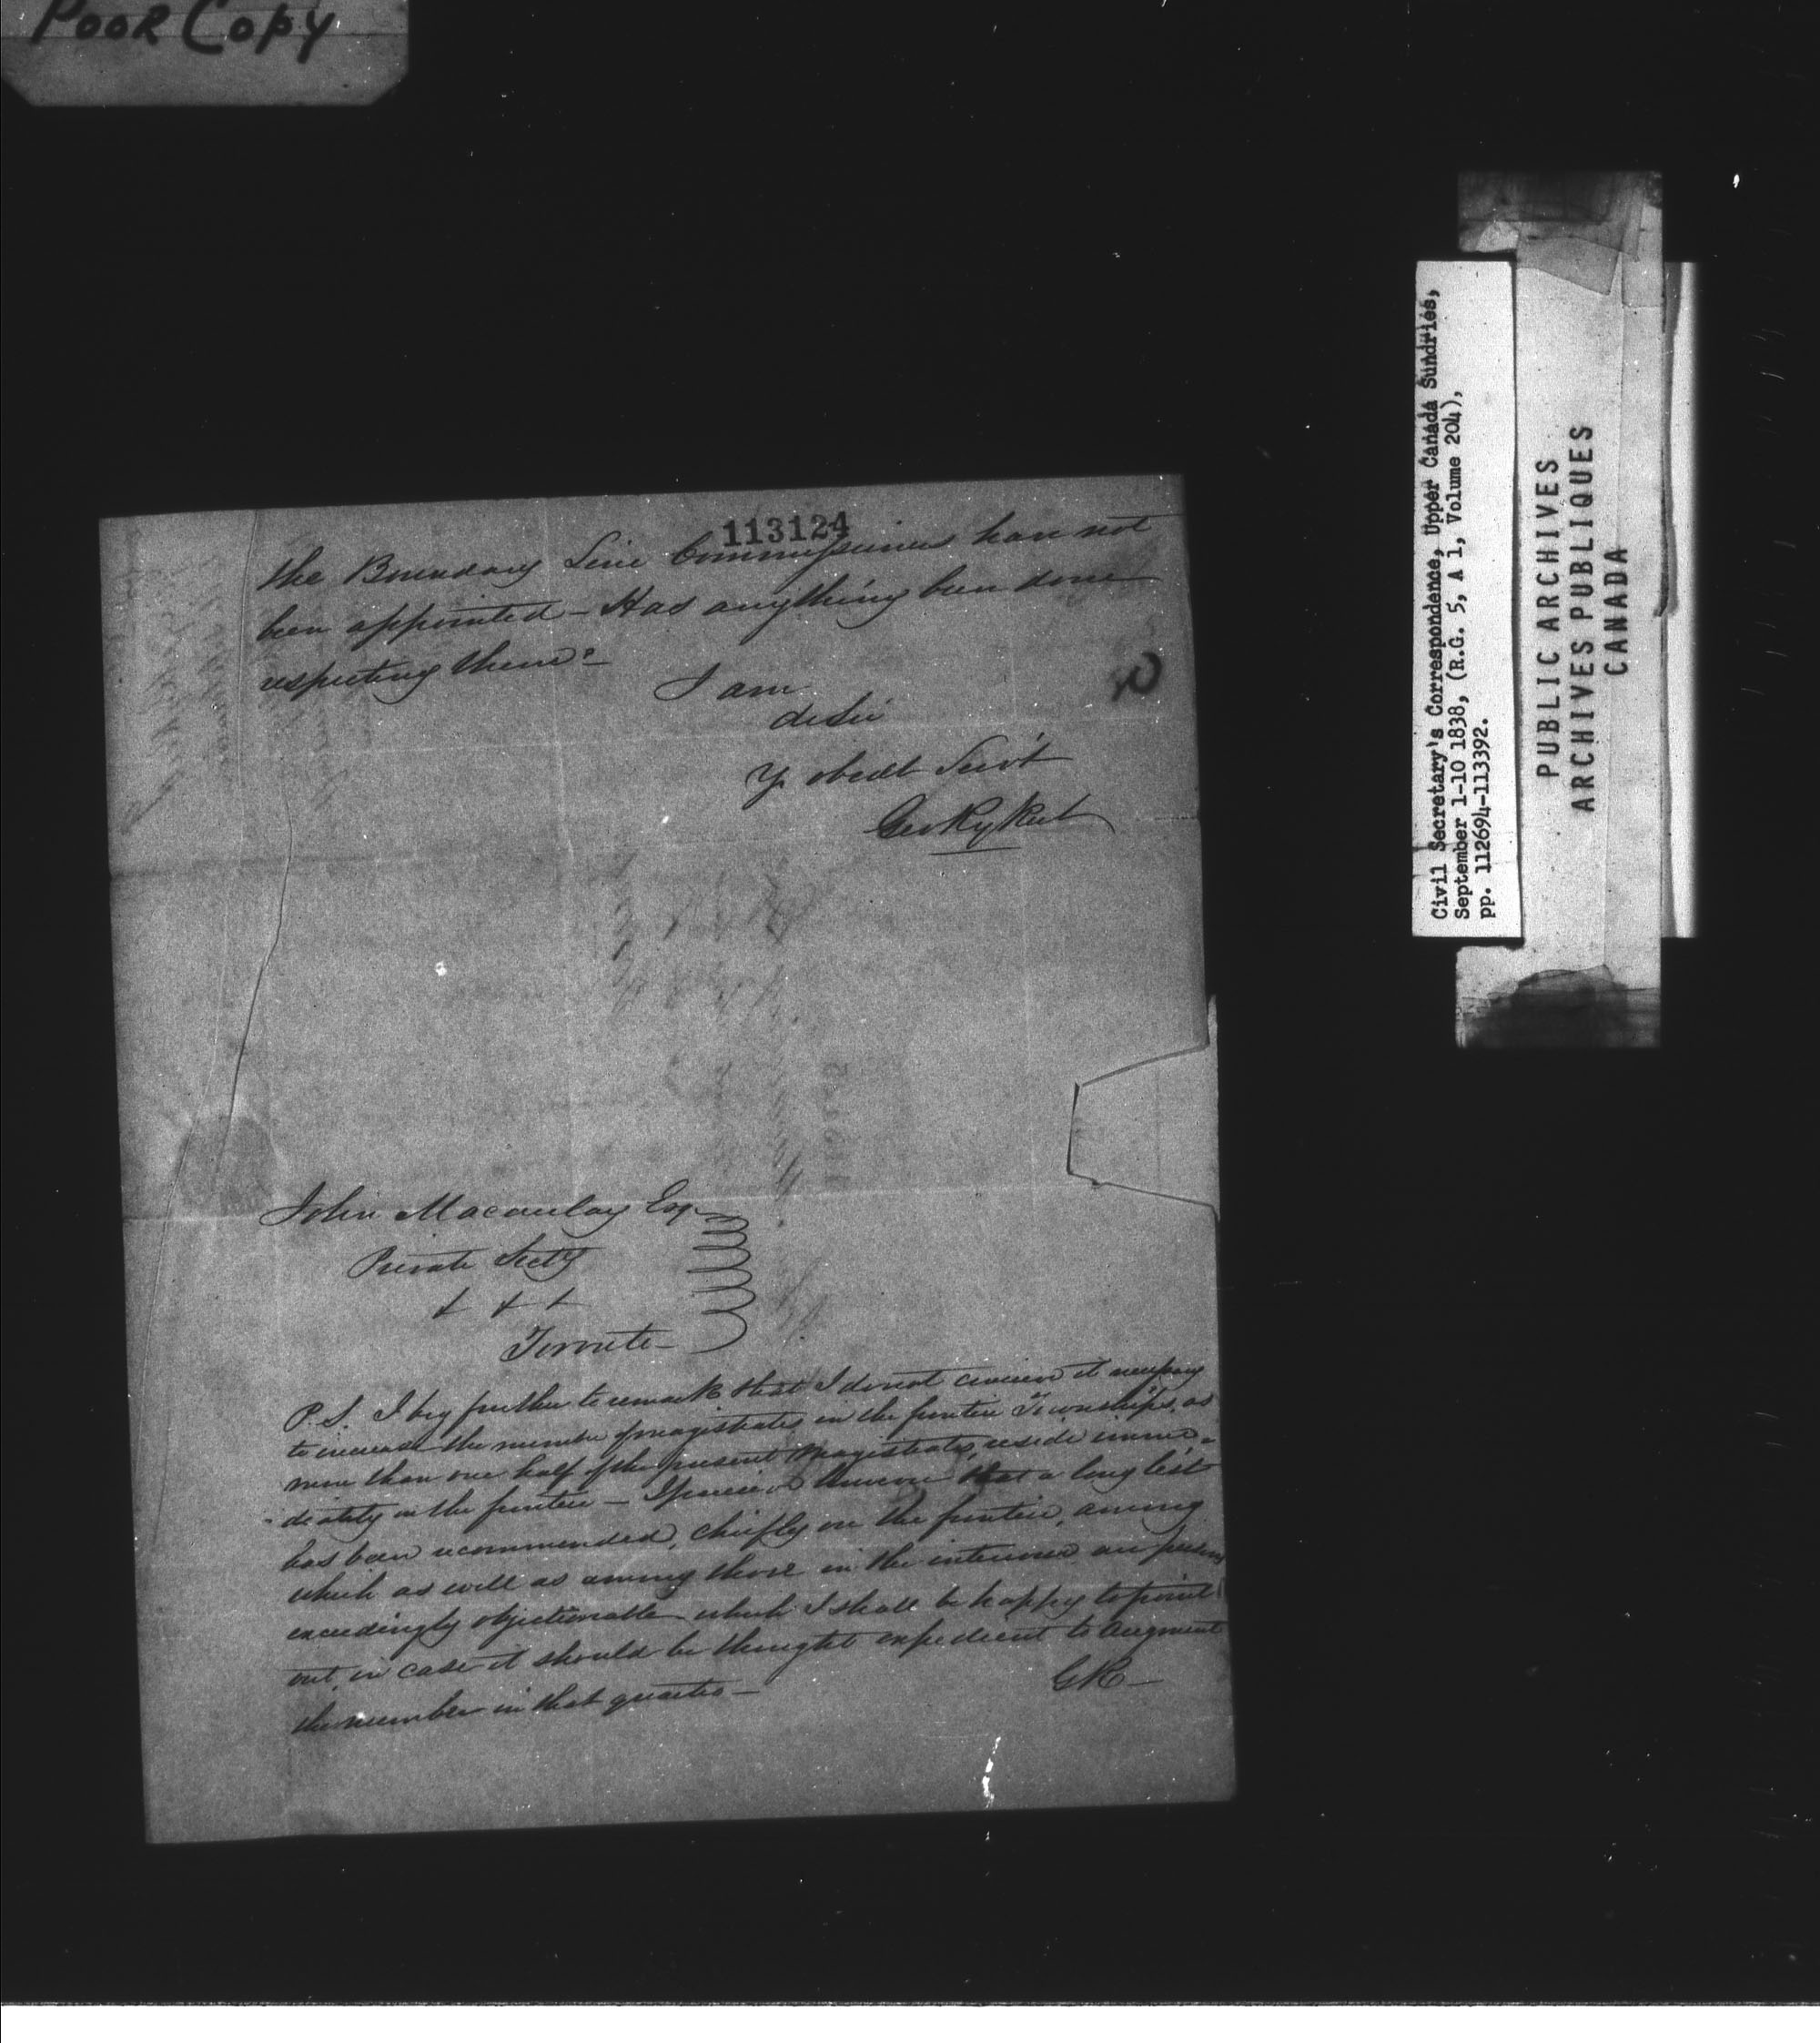 POOR COPY
113124
the Boundary Line Commissioners have not
been appointed - Has anything been done
respecting them? -
I am
dr Sir
Yr obedt Servt
Geo Rykert
John Macaulay Esqr
Private Secty
& & &
Toronto -
P.S. I beg further to remark that I do not conceive it necessary
to increase the number of magistrates in the frontier Townships, as
more than one half of the present Magistrates, reside imme-
-diately on the frontier - I perceive however that a long list
has been recommended, chiefly on the frontier, among
which as well as among those in the interior are persons
exceedingly objectionable which I shall be happy to point
out, in case it should be thought expedient to augment
the number in that quarter -
GR -
Civil Secretary's Correspondence, Upper Canada Sundries,
September 1-10 1838, (R.G. 5, A 1, Volume 204),
pp. 112694-113392.
PUBLIC ARCHIVES
ARCHIVES PUBLIQUES
CANADA